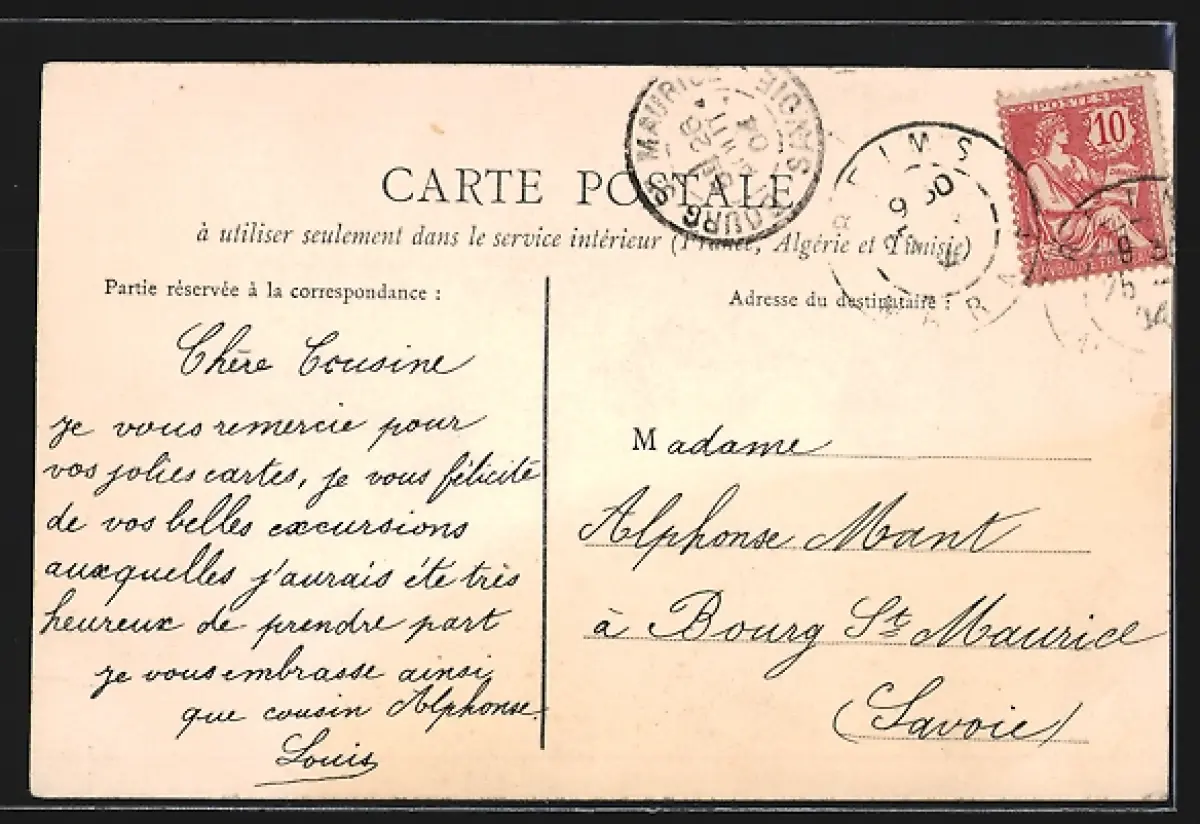 CARTE POSTALE
à utiliser seulement dans le service intérieur (France, Algérie et Tunisie)
Partie réservée à la correspondance :
Chère Cousine
je vous remercie pour
vos jolies cartes, je vous félicite
de vos belles excursions
auxquelles j'aurais été très
heureux de prendre part
je vous embrasse ainsi
que cousin Alphonse.
Louis
Adresse du destinataire :
Madame
Alphonse Mant
à Bourg St Maurice
(Savoie)
BOURG-ST MAURICE
SAVOIE
REIMS
MARNE
POSTES
10
REPUBLIQUE FRANCAISE